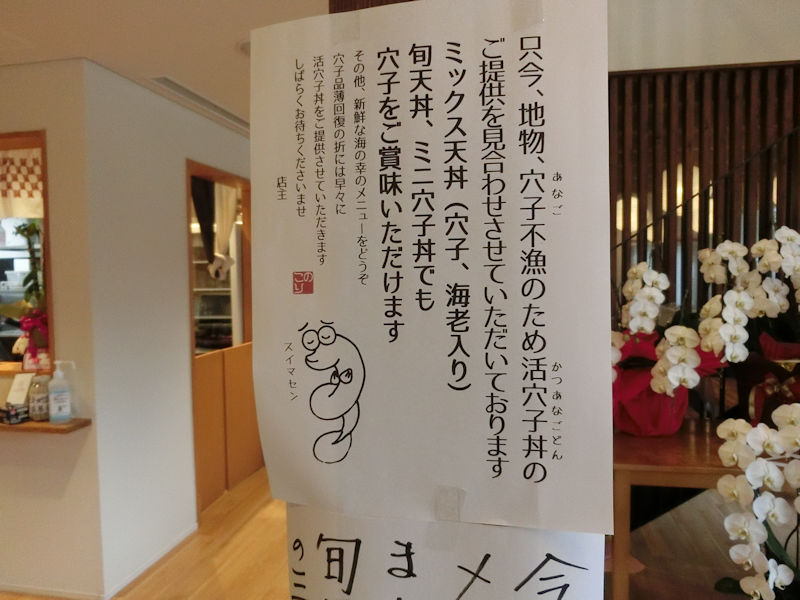 只今、地物、穴子不漁のため活穴子丼の
あなご
かつあなごどん
ご提供を見合わせさせていただいております
ミックス天丼（穴子、海老入り）
旬天丼、ミニ穴子丼でも
穴子をご賞味いただけます
その他、新鮮な海の幸のメニューをどうぞ
穴子品薄回復の折には早々に
活穴子丼をご提供させていただきます
しばらくお待ちくださいませ
店主
のり
こ
スイマセン
今
メ
ま
旬
のこ